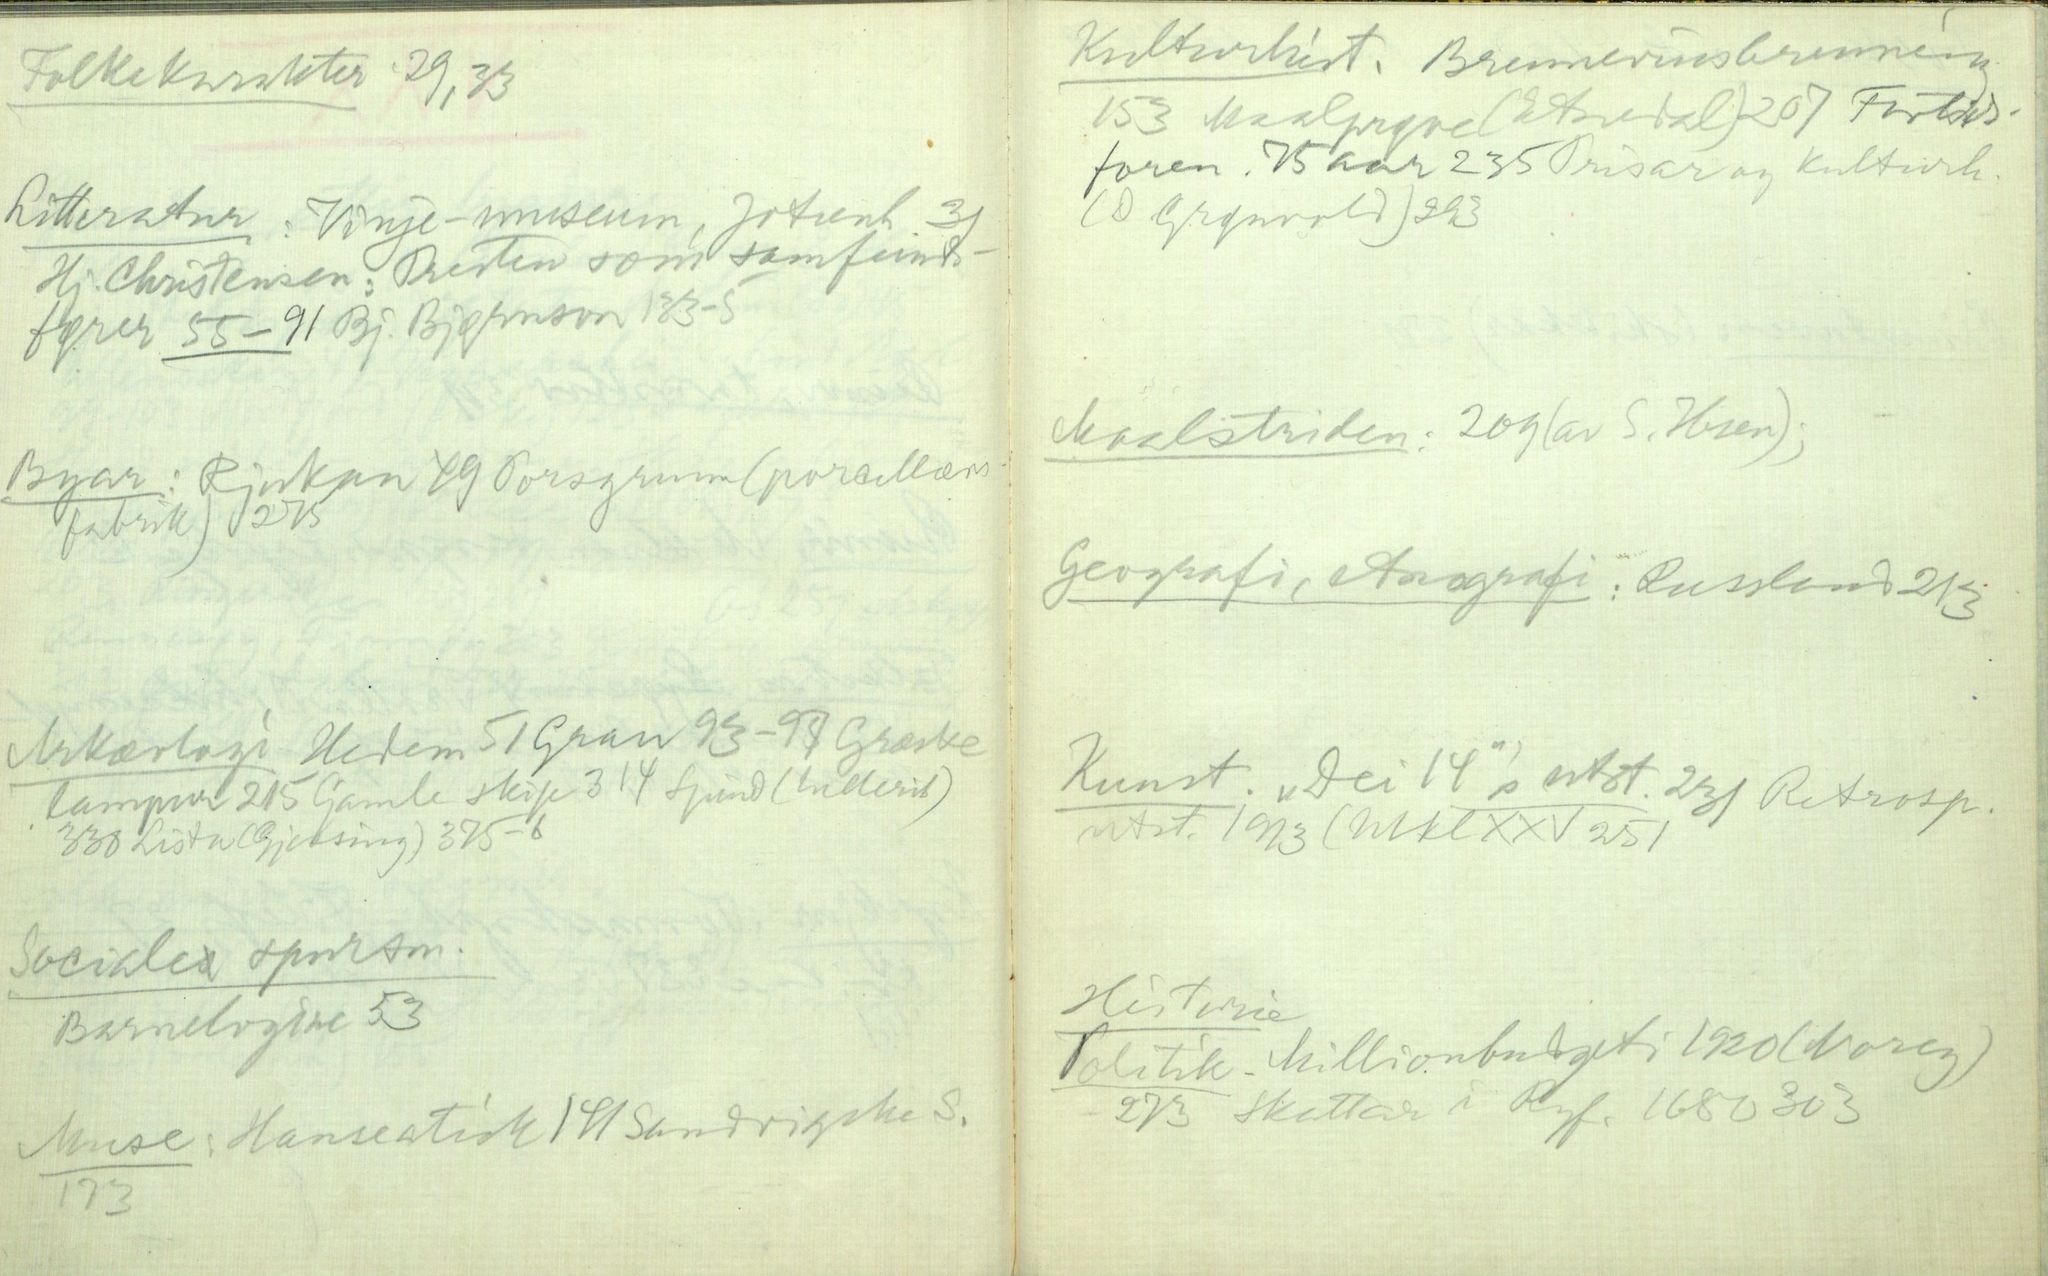 Folkekarakter 29, 33
Litteratur: Vinje-museum, Jotunh 31
Hj. Christensen: Presten som samfunds-
fører 55-91 Bj. Bjørnson 183-5
Byar: Rjukan 49 Porsgrunn (porcellæns-
fabrik) 275
Arkæologi Hedem 51 Gran 93-97 Græske
lampur 215 Gamle skip 314 Spind
330 Lista (Gjessing) 375-6
Sociale spursm.
Barnelogine 53
Muse: Hanseatisk 141 Sandvigske S.
173
Kulturhist. Brennevinsbrenning
153 Maalprøve (Etnedal) 207
foren. 75 aar 235 Prisar og kulturh.
(O Grønvold) 293
Maalstriden: 209 (av S. );
Geografi, etnografi: Russland 213
Kunst. "Dei 14"s utst. 231 Retrosp.
utst. 1913 XXV 251
Historie
Politik - Millionbudgeti 1920 (Noreg)
273 skattar i Ryf. 1680 303